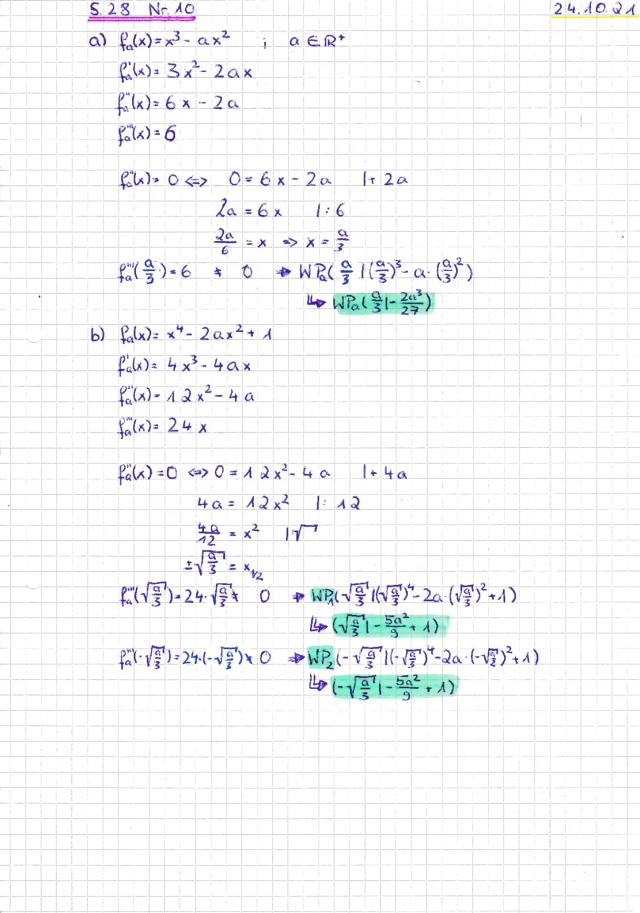 S.28 Nr.10 24.10.21
a) fₐ(x) = x³ - ax² ; a ∈ ℝ⁺
fₐ'(x) = 3x² - 2ax
fₐ''(x) = 6x - 2a
fₐ'''(x) = 6
fₐ''(x) = 0 <=> 0 = 6x - 2a |+ 2a
2a = 6x |: 6
2a/6 = x => x = a/3
fₐ'''(a/3) = 6 ≠ 0 → WPₐ(a/3 | (a/3)³ - a·(a/3)²)
↳ WPₐ(a/3 | - 2a³/27)
b) fₐ(x) = x⁴ - 2ax² + 1
fₐ'(x) = 4x³ - 4ax
fₐ''(x) = 12x² - 4a
fₐ'''(x) = 24x
fₐ''(x) = 0 <=> 0 = 12x² - 4a |+ 4a
4a = 12x² |: 12
4a/12 = x² |√
±√(a/3) = x₁/₂
fₐ'''(√(a/3)) = 24·√(a/3) ≠ 0 → WP₁(√(a/3) | (√(a/3))⁴ - 2a·(√(a/3))² + 1)
↳ (√(a/3) | - 5a²/9 + 1)
fₐ'''(-√(a/3)) = 24·(-√(a/3)) ≠ 0 → WP₂(-√(a/3) | (-√(a/3))⁴ - 2a·(-√(a/3))² + 1)
↳ (-√(a/3) | - 5a²/9 + 1)